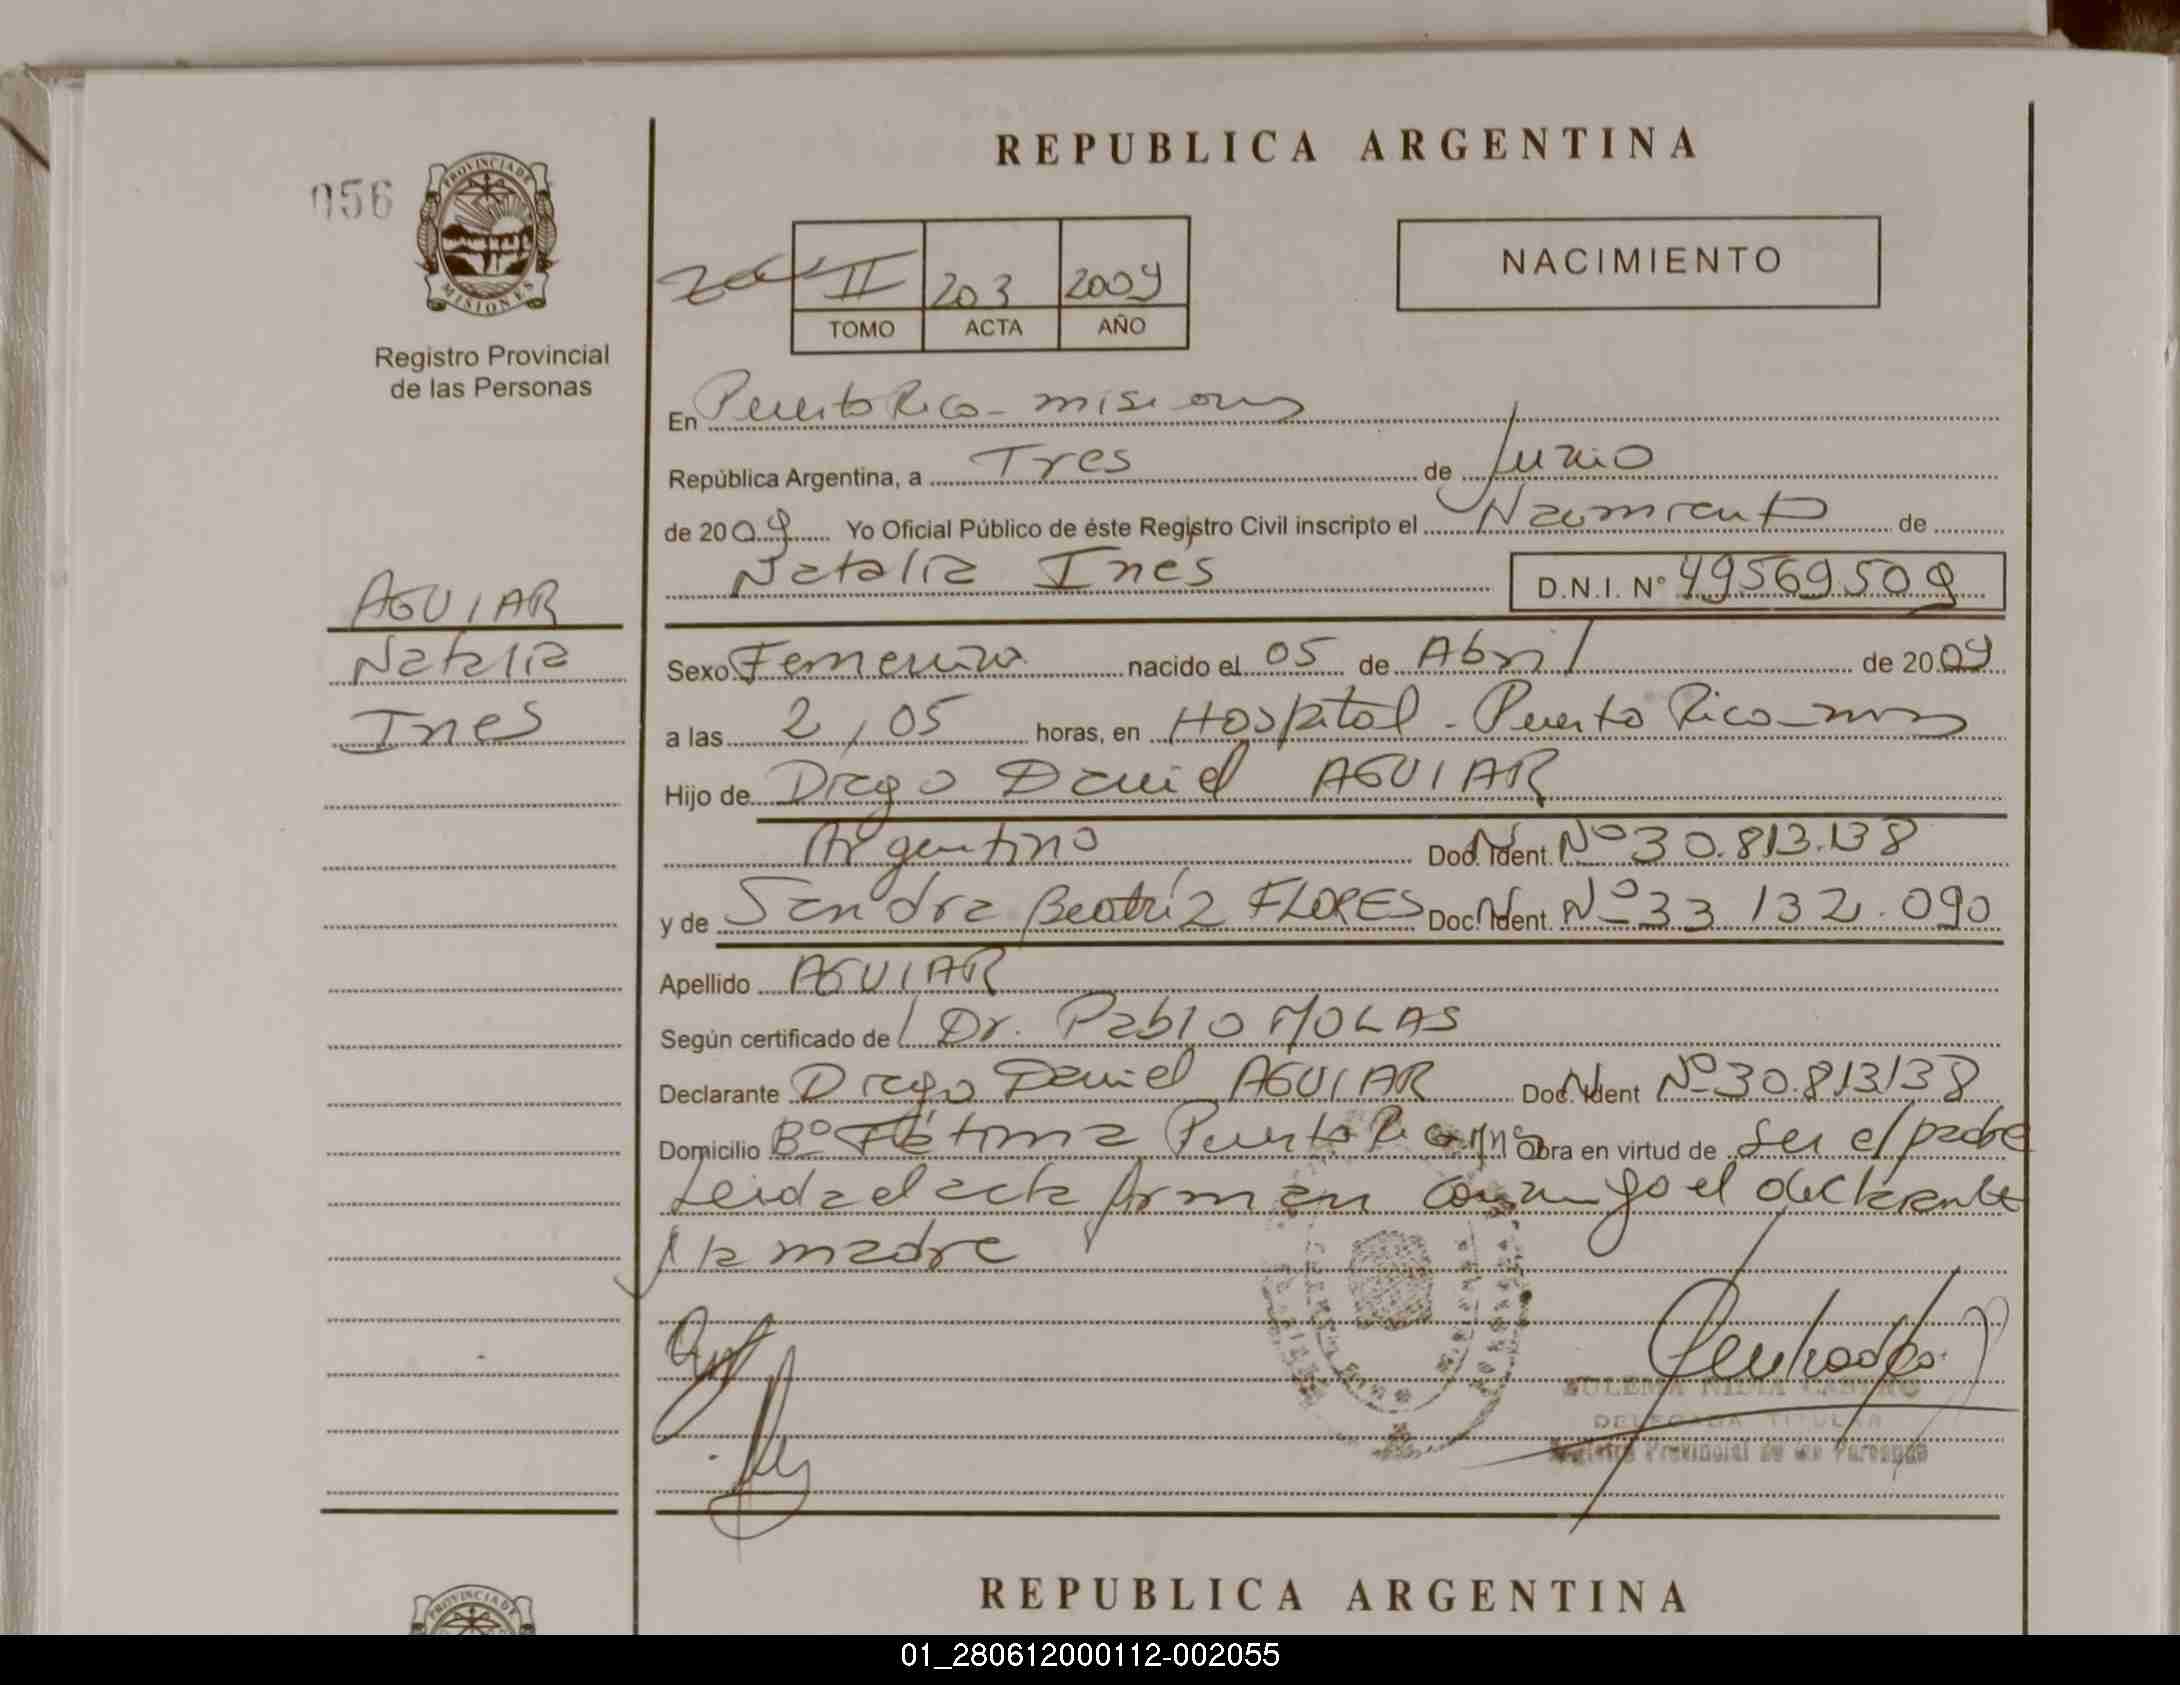 REPUBLICA ARGENTINA
056
PROVINCIA DE
MISIONES
Registro Provincial
de las Personas
II 203 2009
TOMO ACTA AÑO
NACIMIENTO
En Puerto Rico - misiones
República Argentina, a Tres de Junio
de 2009 Yo Oficial Público de éste Registro Civil inscripto el Nacimiento de
Natalia Ines D.N.I. Nº 49569509
AGUIAR
Natalia
Ines
Sexo Femenino nacido el 05 de Abril de 2009
a las 2,05 horas, en Hospital - Puerto Rico - mnes
Hijo de Diego Daniel AGUIAR
Argentino Doc. Ident. Nº 30.813.138
y de Sandra Beatriz FLORES Doc. Ident. Nº 33 132.090
Apellido AGUIAR
Según certificado de Dr. Pablo MOLAS
Declarante Diego Daniel AGUIAR Doc. Ident Nº 30.813138
Domicilio Bº Fátima Puerto Rico mns Obra en virtud de ser el padre
Leida el acta firman conmigo el declarante
y la madre
ZULEMA NIDIA CASTRO
DELEGADA TITULAR
Registro Provincial de las Personas
REPUBLICA ARGENTINA
PROVINCIA DE
01_280612000112-002055